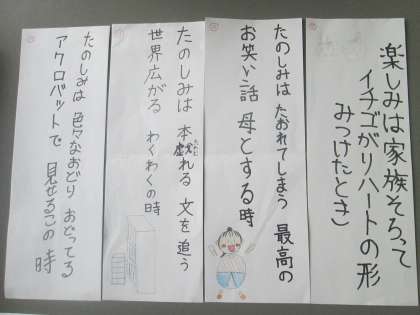 楽しみは家族そろって
イチゴがりハートの形
みつけたとき
たのしみは たおれてしまう 最高の
お笑い話 母とする時
たのしみは 本戯れる 文を追う
世界広がる わくわくの時
たのしみは 色々なおどり おどってる
アクロバットで 見せるこの時